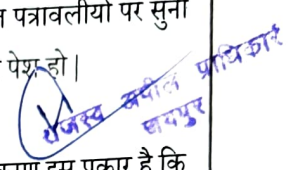 पत्रावलीयो पर सुना
पेश हो।
राजस्व अपील प्राधिकारी
जयपुर
इस प्रकार है कि